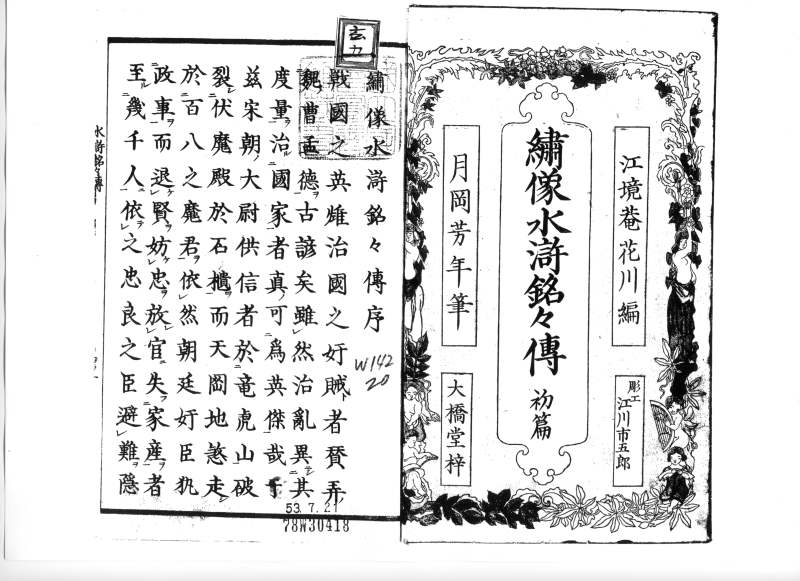 江境菴花川編
彫工
江川市五郎
繡像水滸銘々傳
初篇
月岡芳年筆
大橋堂梓
繡像水滸銘々傳序
戰國之英雄治國之奸賊者賛弄
魏曹孟德古諺矣雖然治亂異其
度量治國家者真可爲英傑哉
茲宋朝大尉供信者於竜虎山破
裂伏魔殿於石櫃而天罡地煞走
於百八之魔君依然朝廷奸臣犯
政事而退賢妨忠放官失家産者
至幾千人依之忠良之臣避難隱
水滸銘々傳
W142
20
53.7.21
78W30418